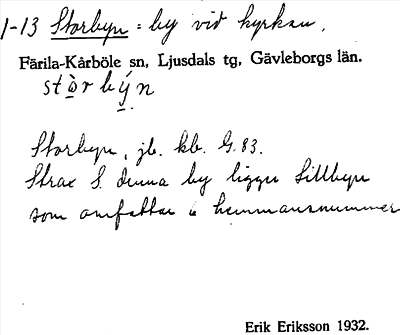 1-13 Storbyn = by vid kyrkan.
Färila-Kårböle sn, Ljusdals tg, Gävleborgs län.
stòrbýn
Storbyn, jb. kb. G. 83.
Strax S. denna by ligger Lillbyn
som omfattar hemmansnummer
Erik Eriksson 1932.